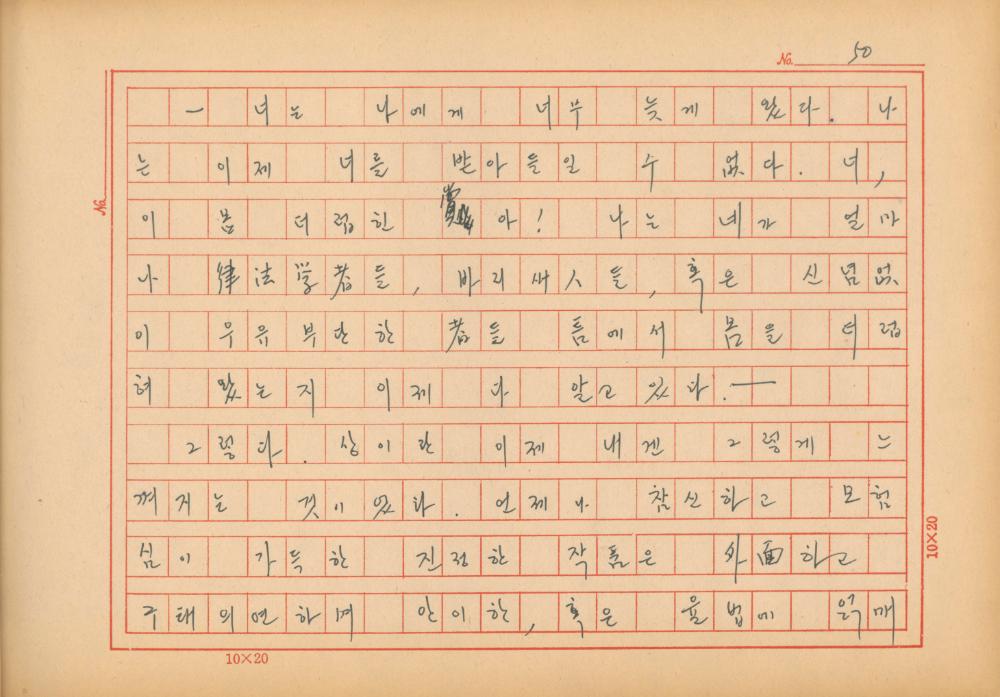 No. 50
— 너는 나에게 너무 늦게 왔다. 나
는 이제 너를 받아들일 수 없다. 너,
이 몸 더럽한 賞아! 나는 네가 얼마
나 律法学者들, 바리새人들, 혹은 신념없
이 우유부단한 者들 틈에서 몸을 더럽
혀 왔는지 이제 다 알고 있다.—
그렇다. 상이란 이제 내겐 그렇게 느
껴지는 것이 있다. 언제나 참신하고 모험
심이 가득한 진정한 작품은 外面하고
구태의연하며 안이한, 혹은 율법에 얽매
No.
10×20
10×20